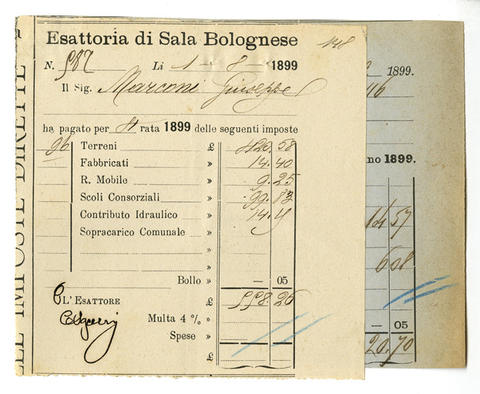 LLE IMPOSTE DIRETTE
Esattoria di Sala Bolognese
N. 587 Li 1 - 8 1899
Il Sig. Marconi Giuseppe
ha pagato per 4 rata 1899 delle seguenti imposte
96 Terreni £ 420.58
Fabbricati » 14.40
R. Mobile » 9.25
Scoli Consorziali » 99.83
Contributo Idraulico » 14.
Sopracarico Comunale »
»
»
Bollo » — 05
L'Esattore £ 558.26
Multa 4 % »
Spese »
£
1899.
no 1899.
57
— 05
20.70